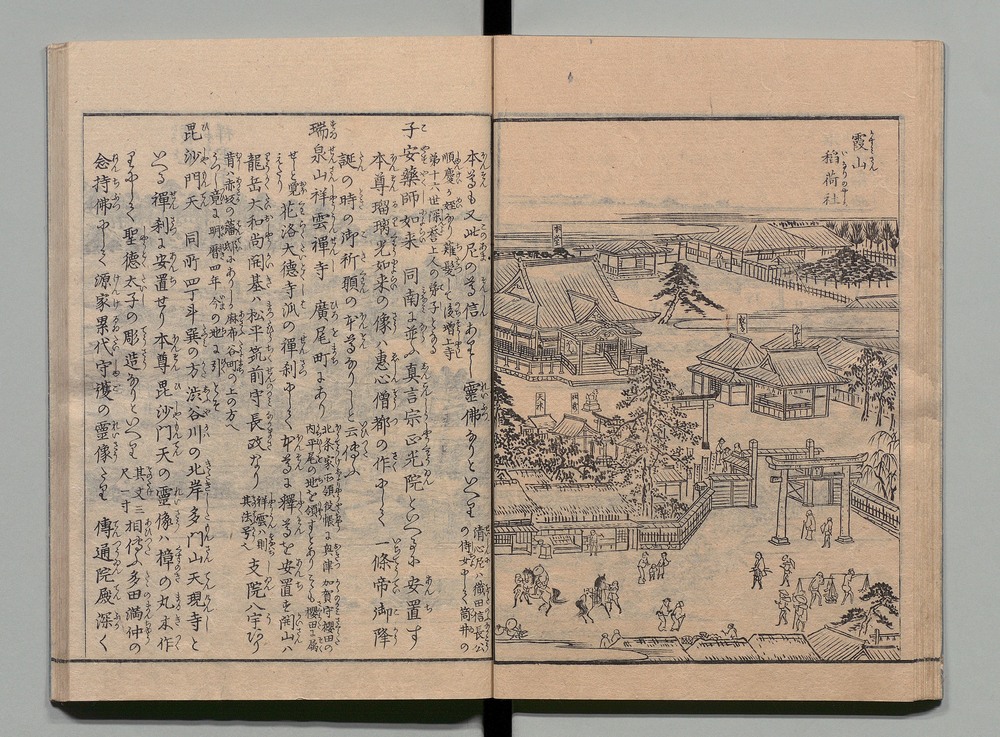 霞山
稲荷社
本尊も又此尼の尊信ありし霊佛なりといへり
清心尼ハ織田信長公
の侍女にして筒井の
順慶の姪なり薙髪して後増上寺
第十六世深誉上人の弟子となる
子安薬師如来 同南に並ふ真言宗正光院といへるに安置す
本尊瑠璃光如来の像ハ恵心僧都の作にして一條帝御降
誕の時の御祈願の本尊なりしと云傳ふ
瑞泉山祥雲禪寺 廣尾町にあり
北条家所領役帳に興津加賀守櫻田の
内平尾の地を領すとあり
せしと覚えたり
花洛大徳寺派の禪刹にして本尊に釋尊を安置す開山ハ
龍岳大和尚開基ハ松平筑前守長政なり
祥雲ハ則
其法号なり
支院八宇あり
昔ハ赤坂の藩邸にありしを麻布谷町の上の方へ
うつし竟に明暦四年今の地に引とそ
毘沙門天 同所四丁斗巽の方渋谷川の北岸多門山天現寺と
いへる禪刹に安置せり本尊毘沙門天の靈像ハ樟の丸木作
りにして聖徳太子の彫造なりといへり
其丈三
尺一寸
相傳ふ多田満仲の
念持佛にして源家累代守護の霊像たり 傳通院殿深く